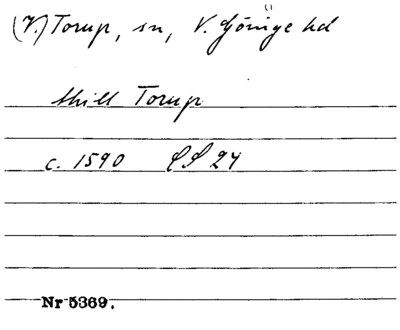 (V.) Torup, sn, V. Göinge hd
thill Torup
c. 1590 LS 24
Nr 5369.